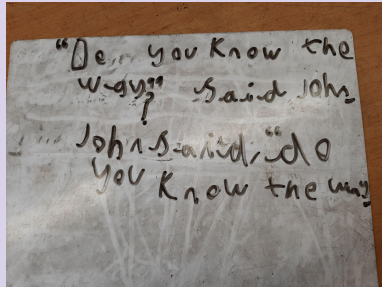 “Do you know the
way?” said John
John said, “do
you know the way